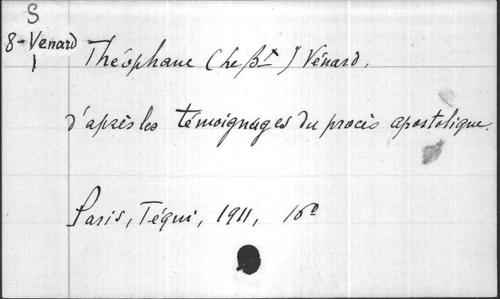 S
8-Venard
1
Théophane (Le Bx) Vénard,
d'après les témoignages du procès apostolique.
Paris, Téqui, 1911, 16º